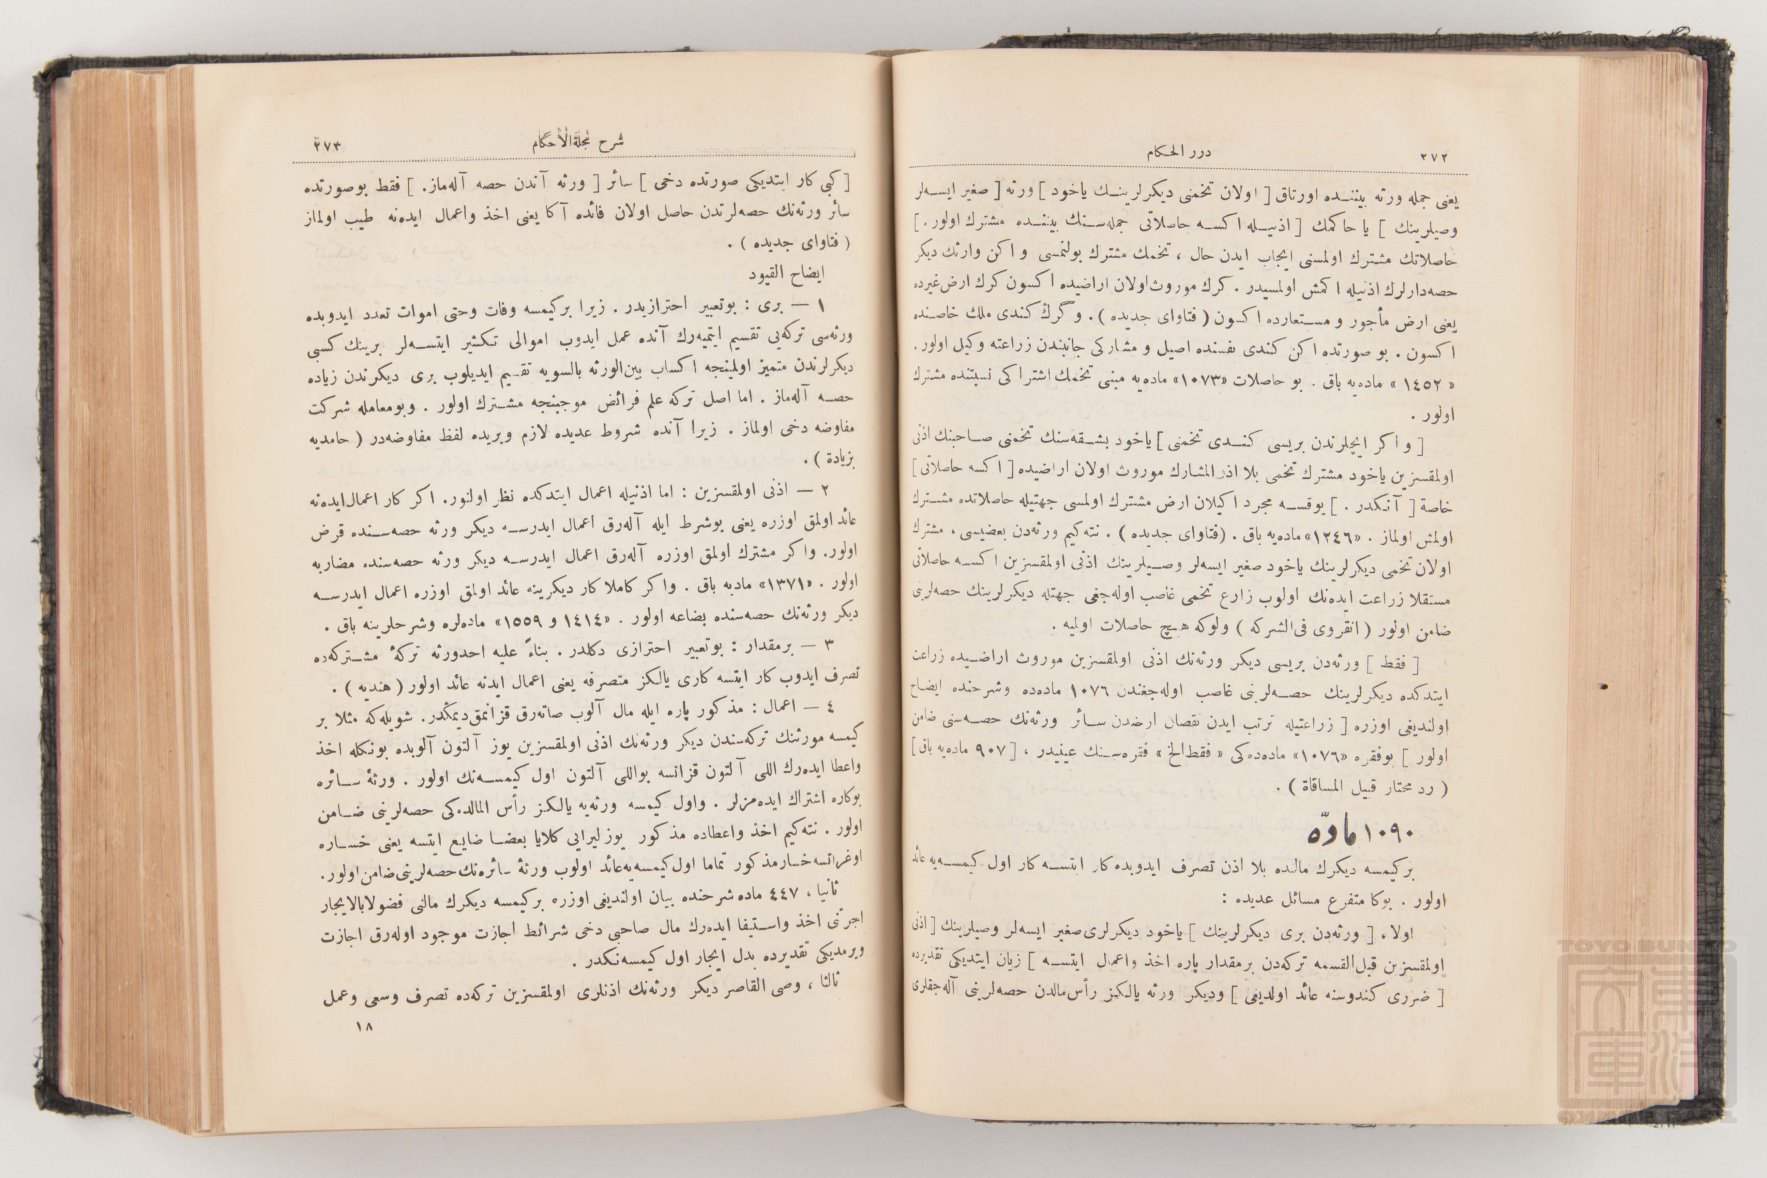 ٢٧٢
درر الحكام
يعنى جمله ورثه بيننده اورتاق [ اولان تخمنى ديكرلرينك ياخود ] ورثه [ صغير ايسه‌لر
وصيلرينك ] يا حاكمك [ اذنيله اكسه حاصلاتى جمله‌سنك بيننده مشترك اولور . ]
حاصلاتك مشترك اولمسنى ايجاب ايدن حال ، تخمك مشترك بولنمسى و اكن وارثك ديكر
حصه‌دارلرك اذنيله اكمش اولمسيدر . كرك موروث اولان اراضيده اكسون كرك ارض غيرده
يعنى ارض مأجور و مستعارده اكسون ( فتاواى جديده ) . و گرك كندى ملك خاصنده
اكسون . بو صورتده اكن كندى نفسنده اصيل و مشاركى جانبندن زراعته وكيل اولور .
« ١٤٥٢ » ماده‌يه باق . بو حاصلات «١٠٧٣» ماده‌يه مبنى تخمك اشتراكى نسبتنده مشترك
اولور .
[ و اكر ايچلرندن بريسى كندى تخمنى ] ياخود بشقه‌سنك تخمنى صاحبنك اذنى
اولمقسزين ياخود مشترك تخمى بلا اذن المشارك موروث اولان اراضيده [ اكسه حاصلاتى ]
خاصة [ آنكدر . ] يوقسه مجرد اكيلان ارض مشترك اولمسى جهتيله حاصلاتده مشترك
اولمش اولماز . «١٢٤٦» ماده‌يه باق . (فتاواى جديده ) . نته‌كيم ورثه‌دن بعضيسى ، مشترك
اولان تخمى ديكرلرينك ياخود صغير ايسه‌لر وصيلرينك اذنى اولمقسزين اكسه حاصلاتى
مستقلا زراعت ايده‌نك اولوب زارع تخمى غاصب اوله‌جغى جهتله ديكرلرينك حصه‌لرينى
ضامن اولور ( انقروى فى الشركه ) ولوكه هيچ حاصلات اولميه .
[ فقط ] ورثه‌دن بريسى ديكر ورثه‌نك اذنى اولمقسزين موروث اراضيده زراعت
ايتدكده ديكرلرينك حصه‌لرينى غاصب اوله‌جغندن ١٠٧٦ ماده‌ده وشرحنده ايضاح
اولنديغى اوزره [ زراعتيله ترتب ايدن نقصان ارضدن سائر ورثه‌نك حصه‌سنى ضامن
اولور ] بوفقره «١٠٧٦» ماده‌ده‌كى « فقط الخ » فقره‌سنك عينيدر ، [ ٩٠٧ ماده‌يه باق ]
( رد محتار قبيل المساقاة ) .
١٠٩٠ مادّه
بركيمسه ديكرك مالنده بلا اذن تصرف ايدوبده كار ايتسه كار اول كيمسه‌يه عائد
اولور . بوكا متفرع مسائل عديده :
اولا ، [ ورثه‌دن برى ديكرلرينك ] ياخود ديكرلرى صغير ايسه‌لر وصيلرينك [ اذنى
اولمقسزين قبل القسمه تركه‌دن برمقدار پاره اخذ واعمال ايتسه ] زيان ايتديكى تقديرده
[ ضررى كندوسنه عائد اولديغى ] وديكر ورثه يالكز رأس مالدن حصه‌لرينى آله‌جقلرى
٢٧٣
شرح مجلة الاحكام
[ كبى كار ايتديكى صورتده دخى ] سائر [ ورثه آندن حصه آله‌ماز . ] فقط بوصورتده
سائر ورثه‌نك حصه‌لرتدن حاصل اولان فائده آكا يعنى اخذ واعمال ايده‌نه طيب اولماز
( فتاواى جديده ) .
ايضاح القيود
١ — برى : بوتعبير احترازيدر . زيرا بركيمسه وفات وحتى اموات تعدد ايدوبده
ورثه‌سى تركه‌يى تقسيم ايتميه‌رك آنده عمل ايدوب اموالى تكثير ايتسه‌لر برينك كسبى
ديكرلرندن متميز اولمينجه اكساب بين الورثه بالسويه تقسيم ايديلوب برى ديكرتدن زياده
حصه آله‌ماز . اما اصل تركه علم فرائض موجبنجه مشترك اولور . وبومعامله شركت
مفاوضه دخى اولماز . زيرا آنده شروط عديده لازم ويريده لفظ مفاوضه‌در ( حامديه
بزيادة ) .
٢ — اذنى اولمقسزين : اما اذنيله اعمال ايتدكده نظر اولنور. اكر كار اعمال ايده‌نه
عائد اولمق اوزره يعنى بوشرط ايله آله‌رق اعمال ايدرسه ديكر ورثه حصه‌سنده قرض
اولور. واكر مشترك اولمق اوزره آله‌رق اعمال ايدرسه ديكر ورثه حصه‌سنده مضاربه
اولور . «١٣٧١» ماديه باق . واكر كاملا كار ديكرينه عائد اولمق اوزره اعمال ايدرسه
ديكر ورثه‌نك حصه‌سنده بضاعه اولور . «١٤١٤ و ١٥٥٩» ماده‌لره وشرحلرينه باق .
٣ — برمقدار : بوتعبير احترازى دكلدر . بناءً عليه احدورثه تركۀ مشتركه‌ده
تصرف ايدوب كار ايتسه كارى يالكز متصرفه يعنى اعمال ايدنه عائد اولور ( هنديه ) .
٤ — اعمال : مذكور پاره ايله مال آلوب صاته‌رق قزانمق ديمكدر. شويله‌كه مثلا بر
كيمسه مورثنك تركه‌سندن ديكر ورثه‌نك اذنى اولمقسزين يوز آلتون آلوبده بونكله اخذ
واعطا ايده‌رك اللى آلتون قزانسه بواللى آلتون اول كيمسه‌نك اولور . ورثۀ سائره
بوكاره اشتراك ايده‌مزلر . واول كيمسه ورثه‌يه يالكز رأس المالده‌كى حصه‌لرينى ضامن
اولور . نته‌كيم اخذ واعطاده مذكور يوز ليرايى كلايا بعضا ضايع ايتسه يعنى خساره
اوغراتسه خسار مذكور تماما اول كيمسه‌يه عائد اولوب ورثۀ سائره‌نك حصه‌لرينى ضامن اولور.
ثانيا ، ٤٤٧ ماده شرحنده بيان اولنديغى اوزره بركيمسه ديكرك مالنى فضولا بالايجار
اجرتنى اخذ واستيفا ايده‌رك مال صاحبى دخى شرائط اجازت موجود اوله‌رق اجازت
ويرمديكى تقديرده بدل ايجار اول كيمسه‌نكدر .
ثالثا ، وصى القاصر ديكر ورثه‌نك اذنلرى اولمقسزين تركه‌ده تصرف وسعى وعمل
١٨
TOYO BUNKO